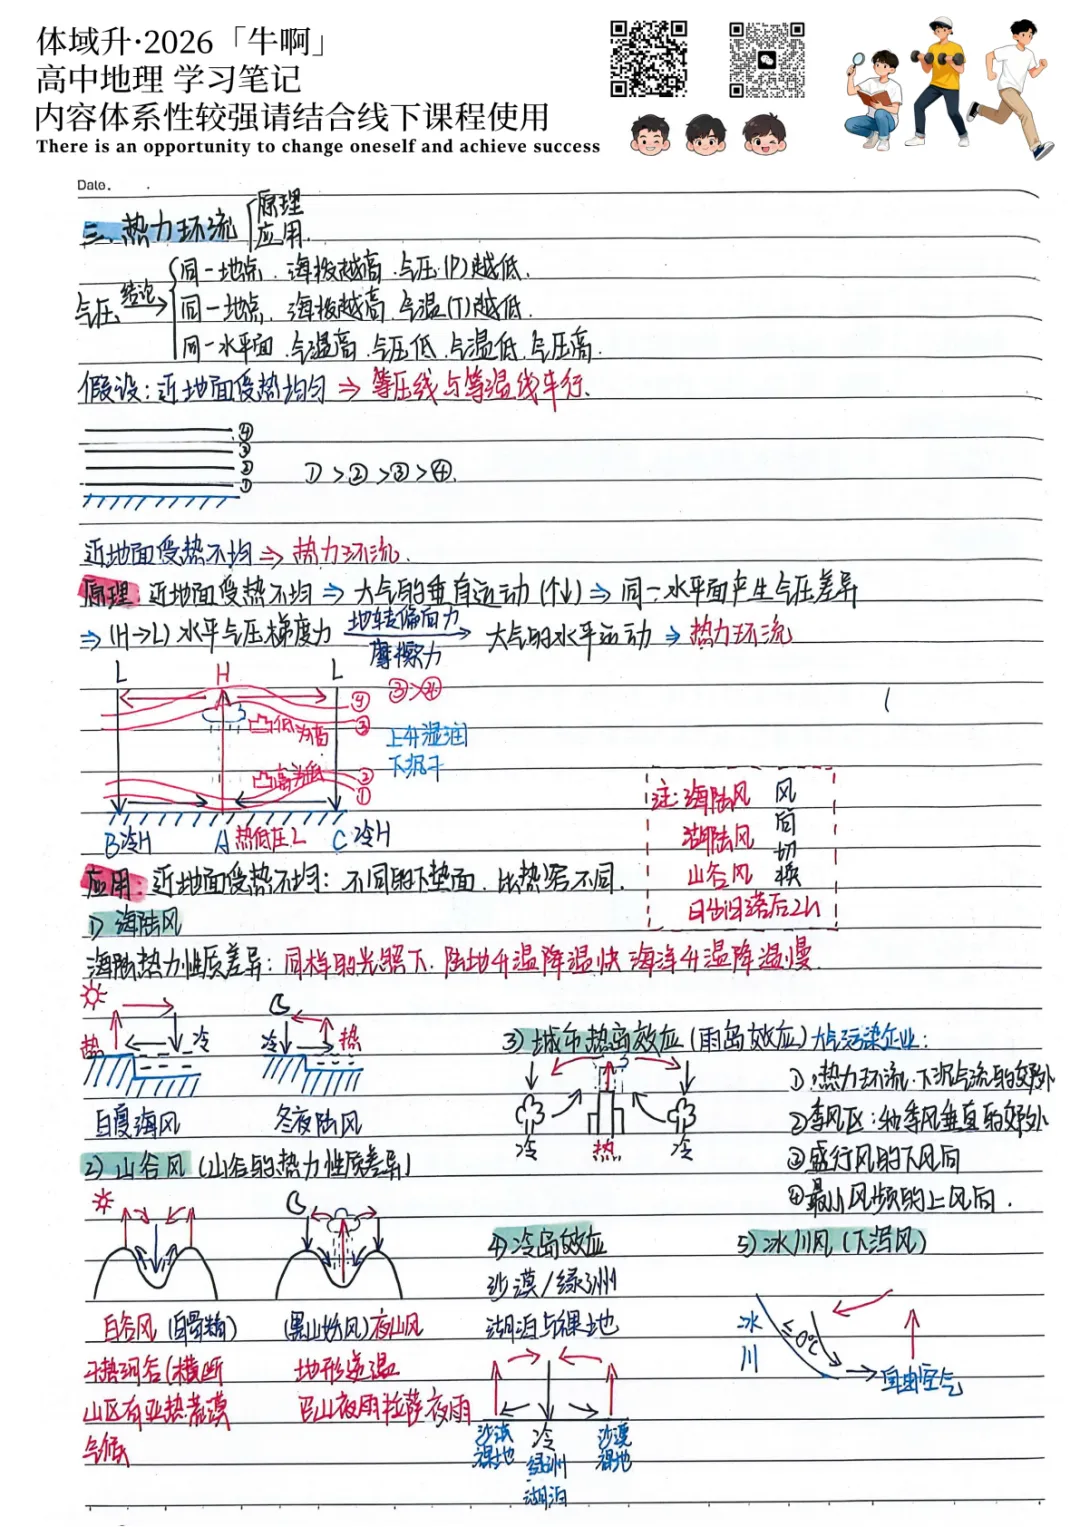 体域升·2026「牛啊」
高中地理 学习笔记
内容体系性较强请结合线下课程使用
There is an opportunity to change oneself and achieve success
Date.
三、热力环流 原理
应用.
同一地点.海拔越高.气压(P)越低.
气压 结论 同一地点.海拔越高.气温(T)越低.
同一水平面.气温高.气压低.气温低.气压高.
假设:近地面受热均匀⇒等压线与等温线平行.
④
③
②
①
①>②>③>④.
近地面受热不均⇒热力环流.
原理:近地面受热不均⇒大气的垂直运动(↑↓)⇒同一水平面产生气压差异
⇒(H→L)水平气压梯度力 地转偏向力 摩擦力 → 大气的水平运动⇒热力环流
L H L
④ ③>④
③
凸低为高
上升湿润
下沉干
凸高为低
②
①
B冷H A热低压L C冷H
注:海陆风 风
湖陆风 向
切
山谷风 换
日出日落后2h
应用:近地面受热不均:不同的下垫面.比热容不同.
1)海陆风
海陆热力性质差异:同样的光照下.陆地升温降温快 海洋升温降温慢.
热 冷 冷 热
白夏海风 冬夜陆风
3)城市热岛效应(雨岛效应)大气污染企业:
冷 热 冷
①热力环流.下沉气流的郊外
②季风区:和季风垂直的郊外
③盛行风的下风向
④最小风频的上风向.
2)山谷风(山谷的热力性质差异)
白谷风(白骨精) (黑山妖风)夜山风
干热河谷(横断 地形逆温
山区有亚热荒漠 巴山夜雨拉萨夜雨
气候
4)冷岛效应
沙漠/绿洲
湖泊与裸地
沙漠 冷 沙漠
裸地 绿洲 裸地
湖泊
5)冰川风(下泻风)
冰
川
≤0℃
自由空气